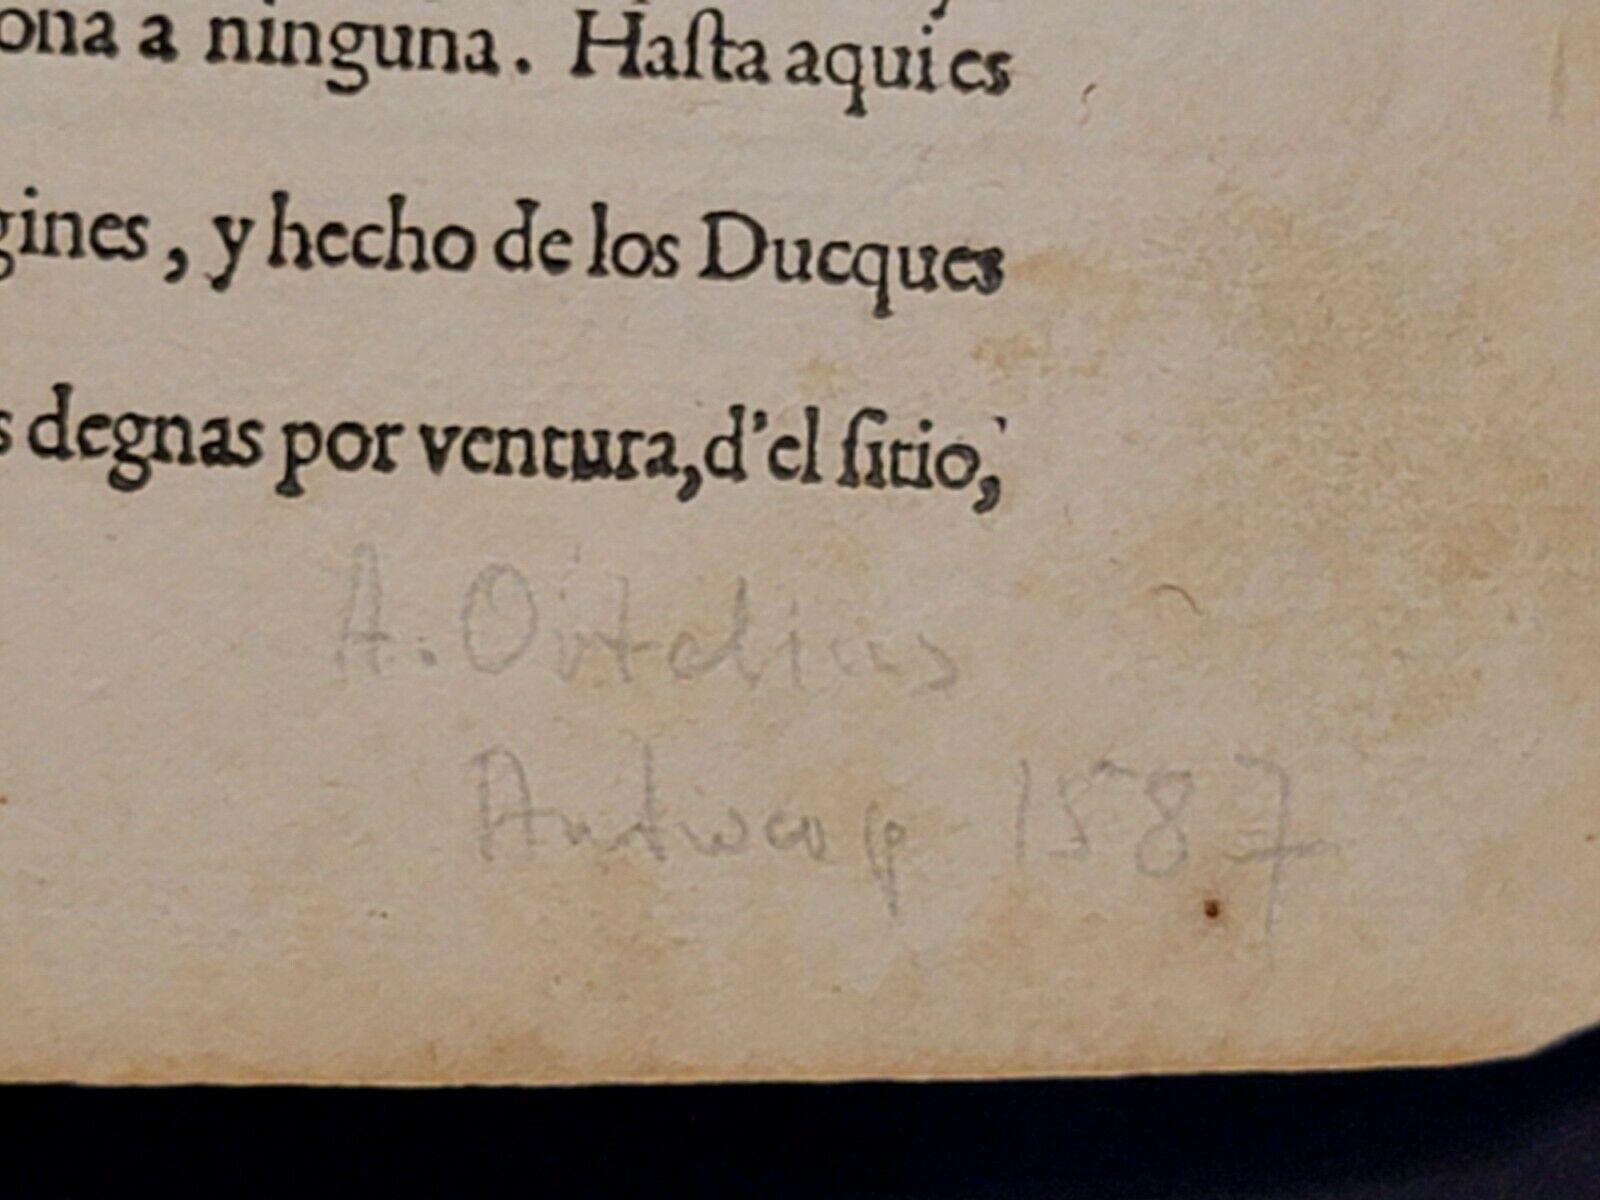 ona a ninguna. Haſta aqui es
gines, y hecho de los Ducques
s degnas por ventura, d'el ſitio,
A. Ortelius
Antwerp 1587